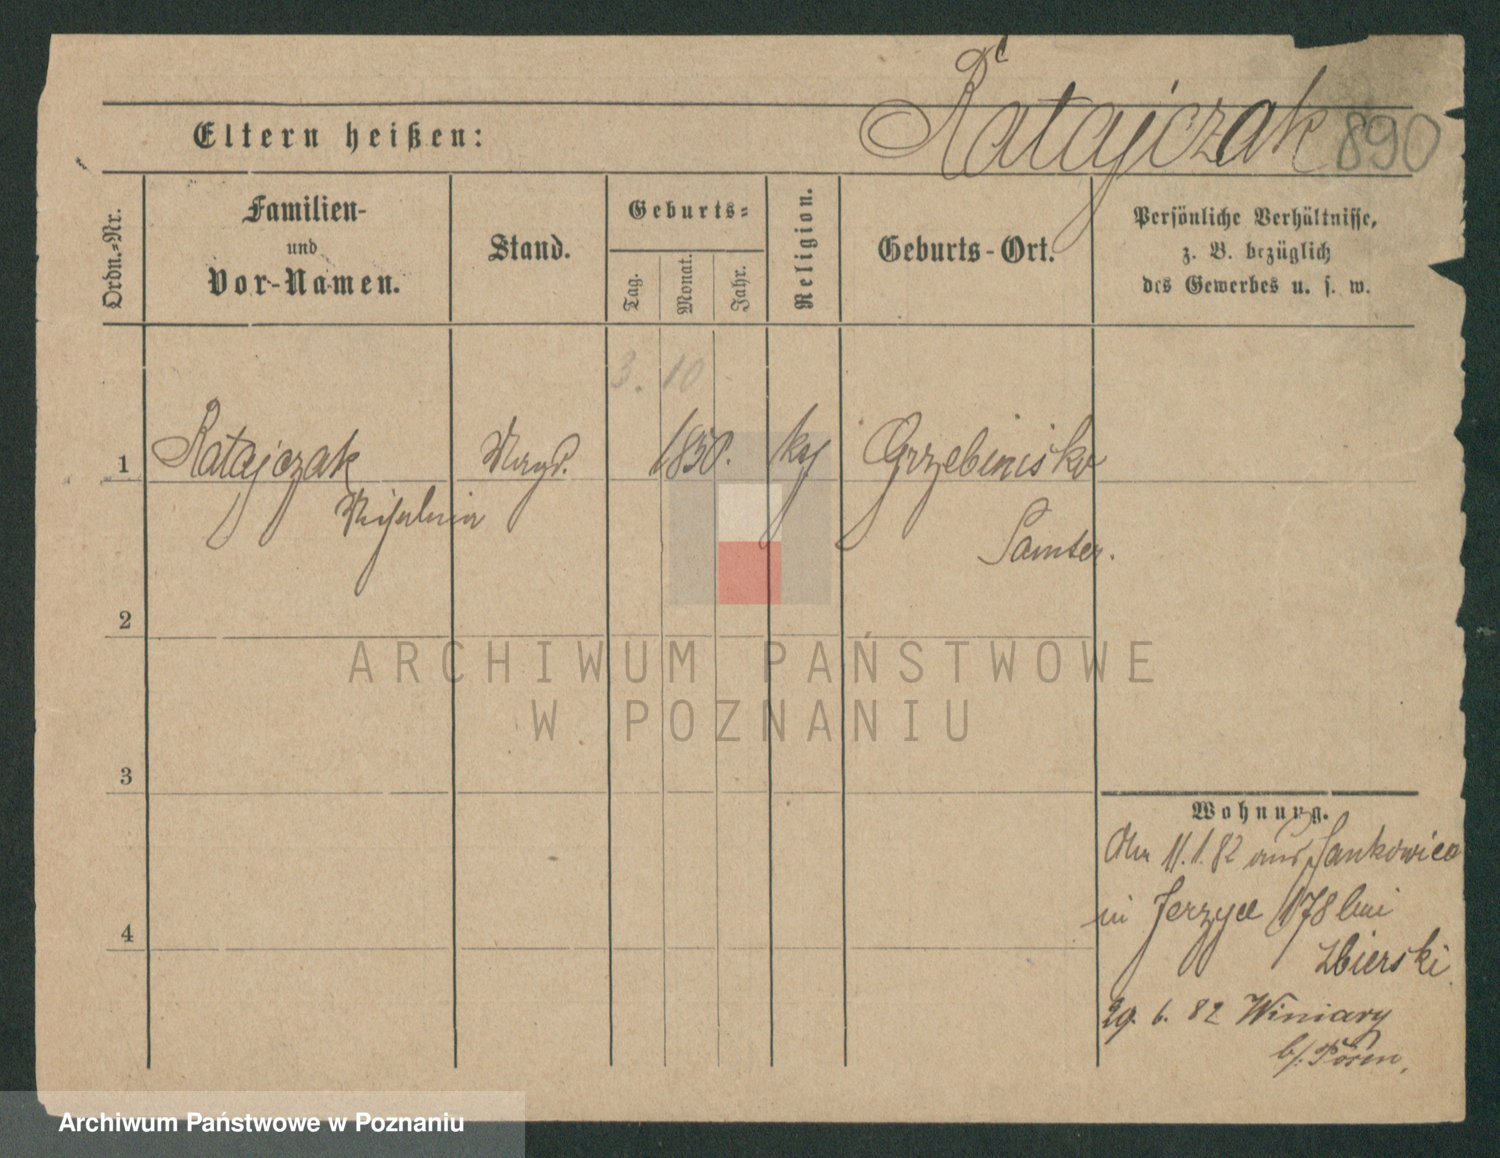 Ratajczak 890
Eltern heißen:
Ordn.-Nr.
Familien-
und
Vor-Namen.
Stand.
Geburts-
Tag.
Monat.
Jahr.
Religion.
Geburts-Ort.
Persönliche Verhältnisse,
z. B. bezüglich
des Gewerbes u. s. w.
3. 10
1 Ratajczak Magd. 1850. Grzebinisko
Samter.
2
3
4
Wohnung.
11.1.82 aus Jankowice
in Jerzyce 178 bei
Zbierski
29. 6. 82 Winiary
b/. Posen.
ARCHIWUM PAŃSTWOWE
W POZNANIU
Archiwum Państwowe w Poznaniu